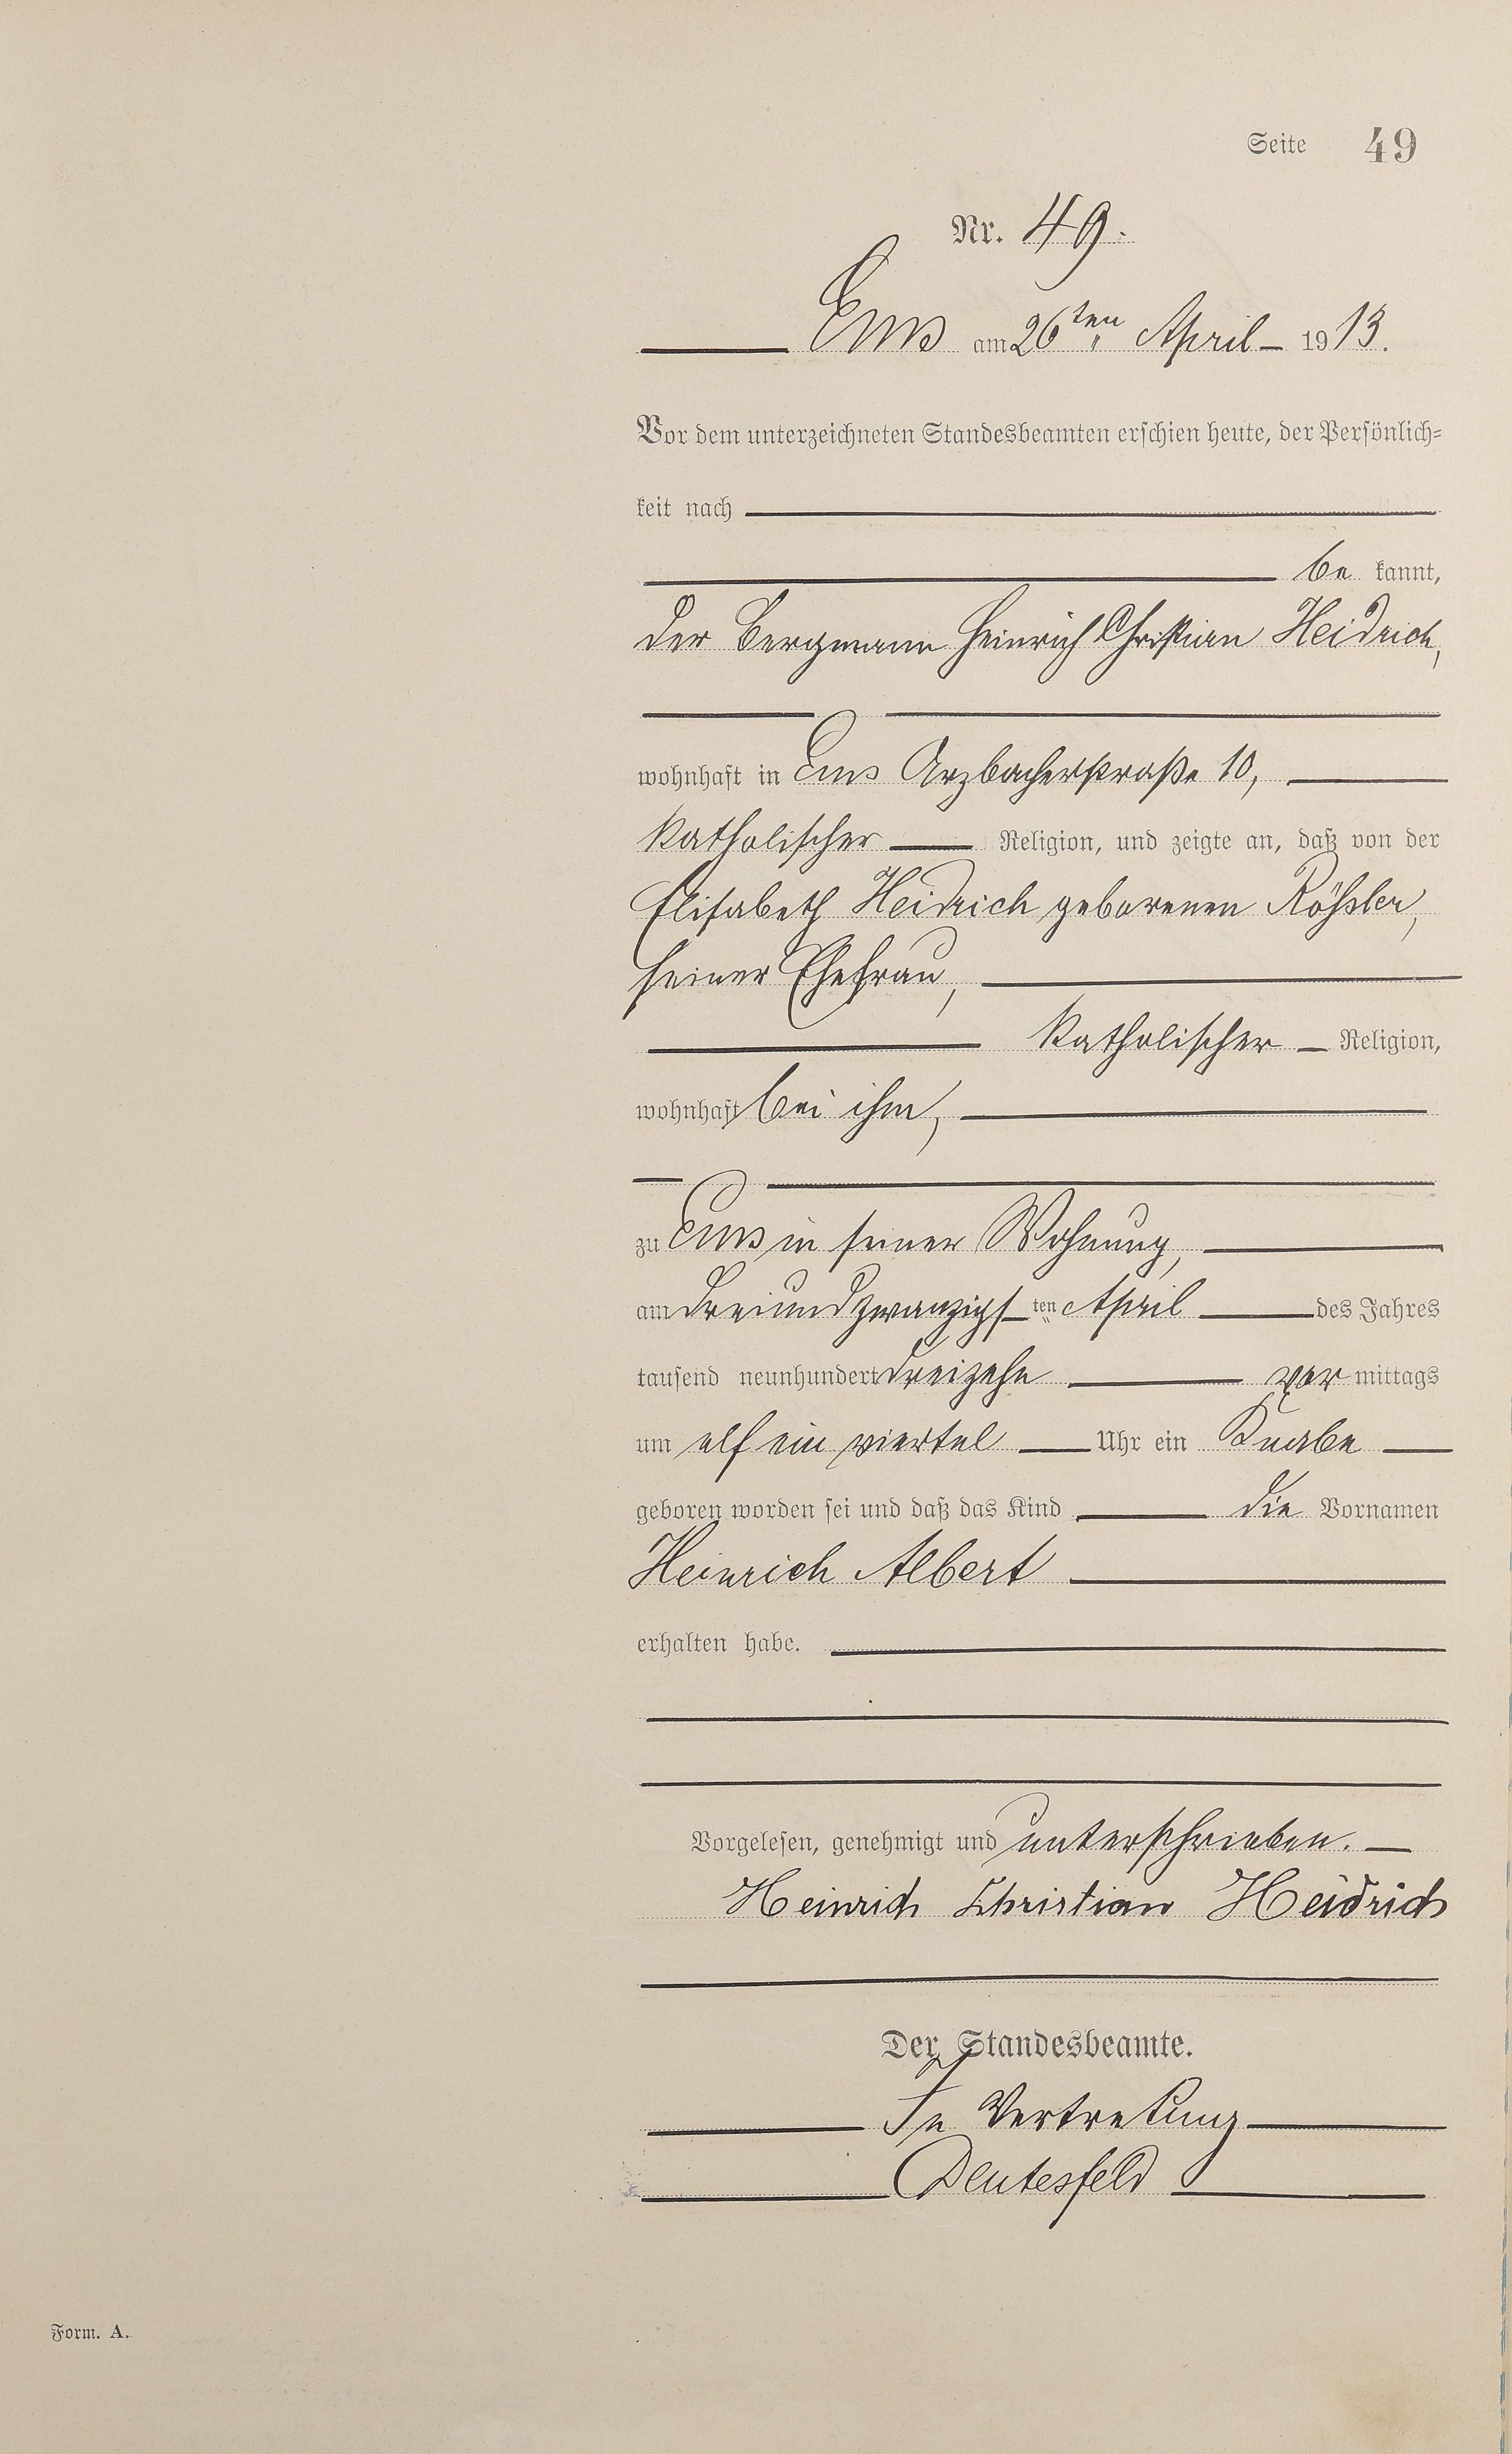 Seite 49
Nr. 49.
Ems am 26ten April 1913.
Vor dem unterzeichneten Standesbeamten erschien heute, der Persönlich-
keit nach
be kannt,
der Bergmann Heinrich Christian Heidrich,
wohnhaft in Ems Arzbacherstraße 10,
katholischer Religion, und zeigte an, daß von der
Elisabeth Heidrich geborenen Rößler,
seiner Ehefrau,
katholischer Religion,
wohnhaft bei ihm,
zu Ems in seiner Wohnung,
am dreiundzwanzigsten April des Jahres
tausend neunhundert dreizehn vor mittags
um elf ein viertel Uhr ein Knabe
geboren worden sei und daß das Kind die Vornamen
Heinrich Albert
erhalten habe.
Vorgelesen, genehmigt und unterschrieben.
Heinrich Christian Heidrich
Der Standesbeamte.
In Vertretung
Deutesfeld
Form. A.